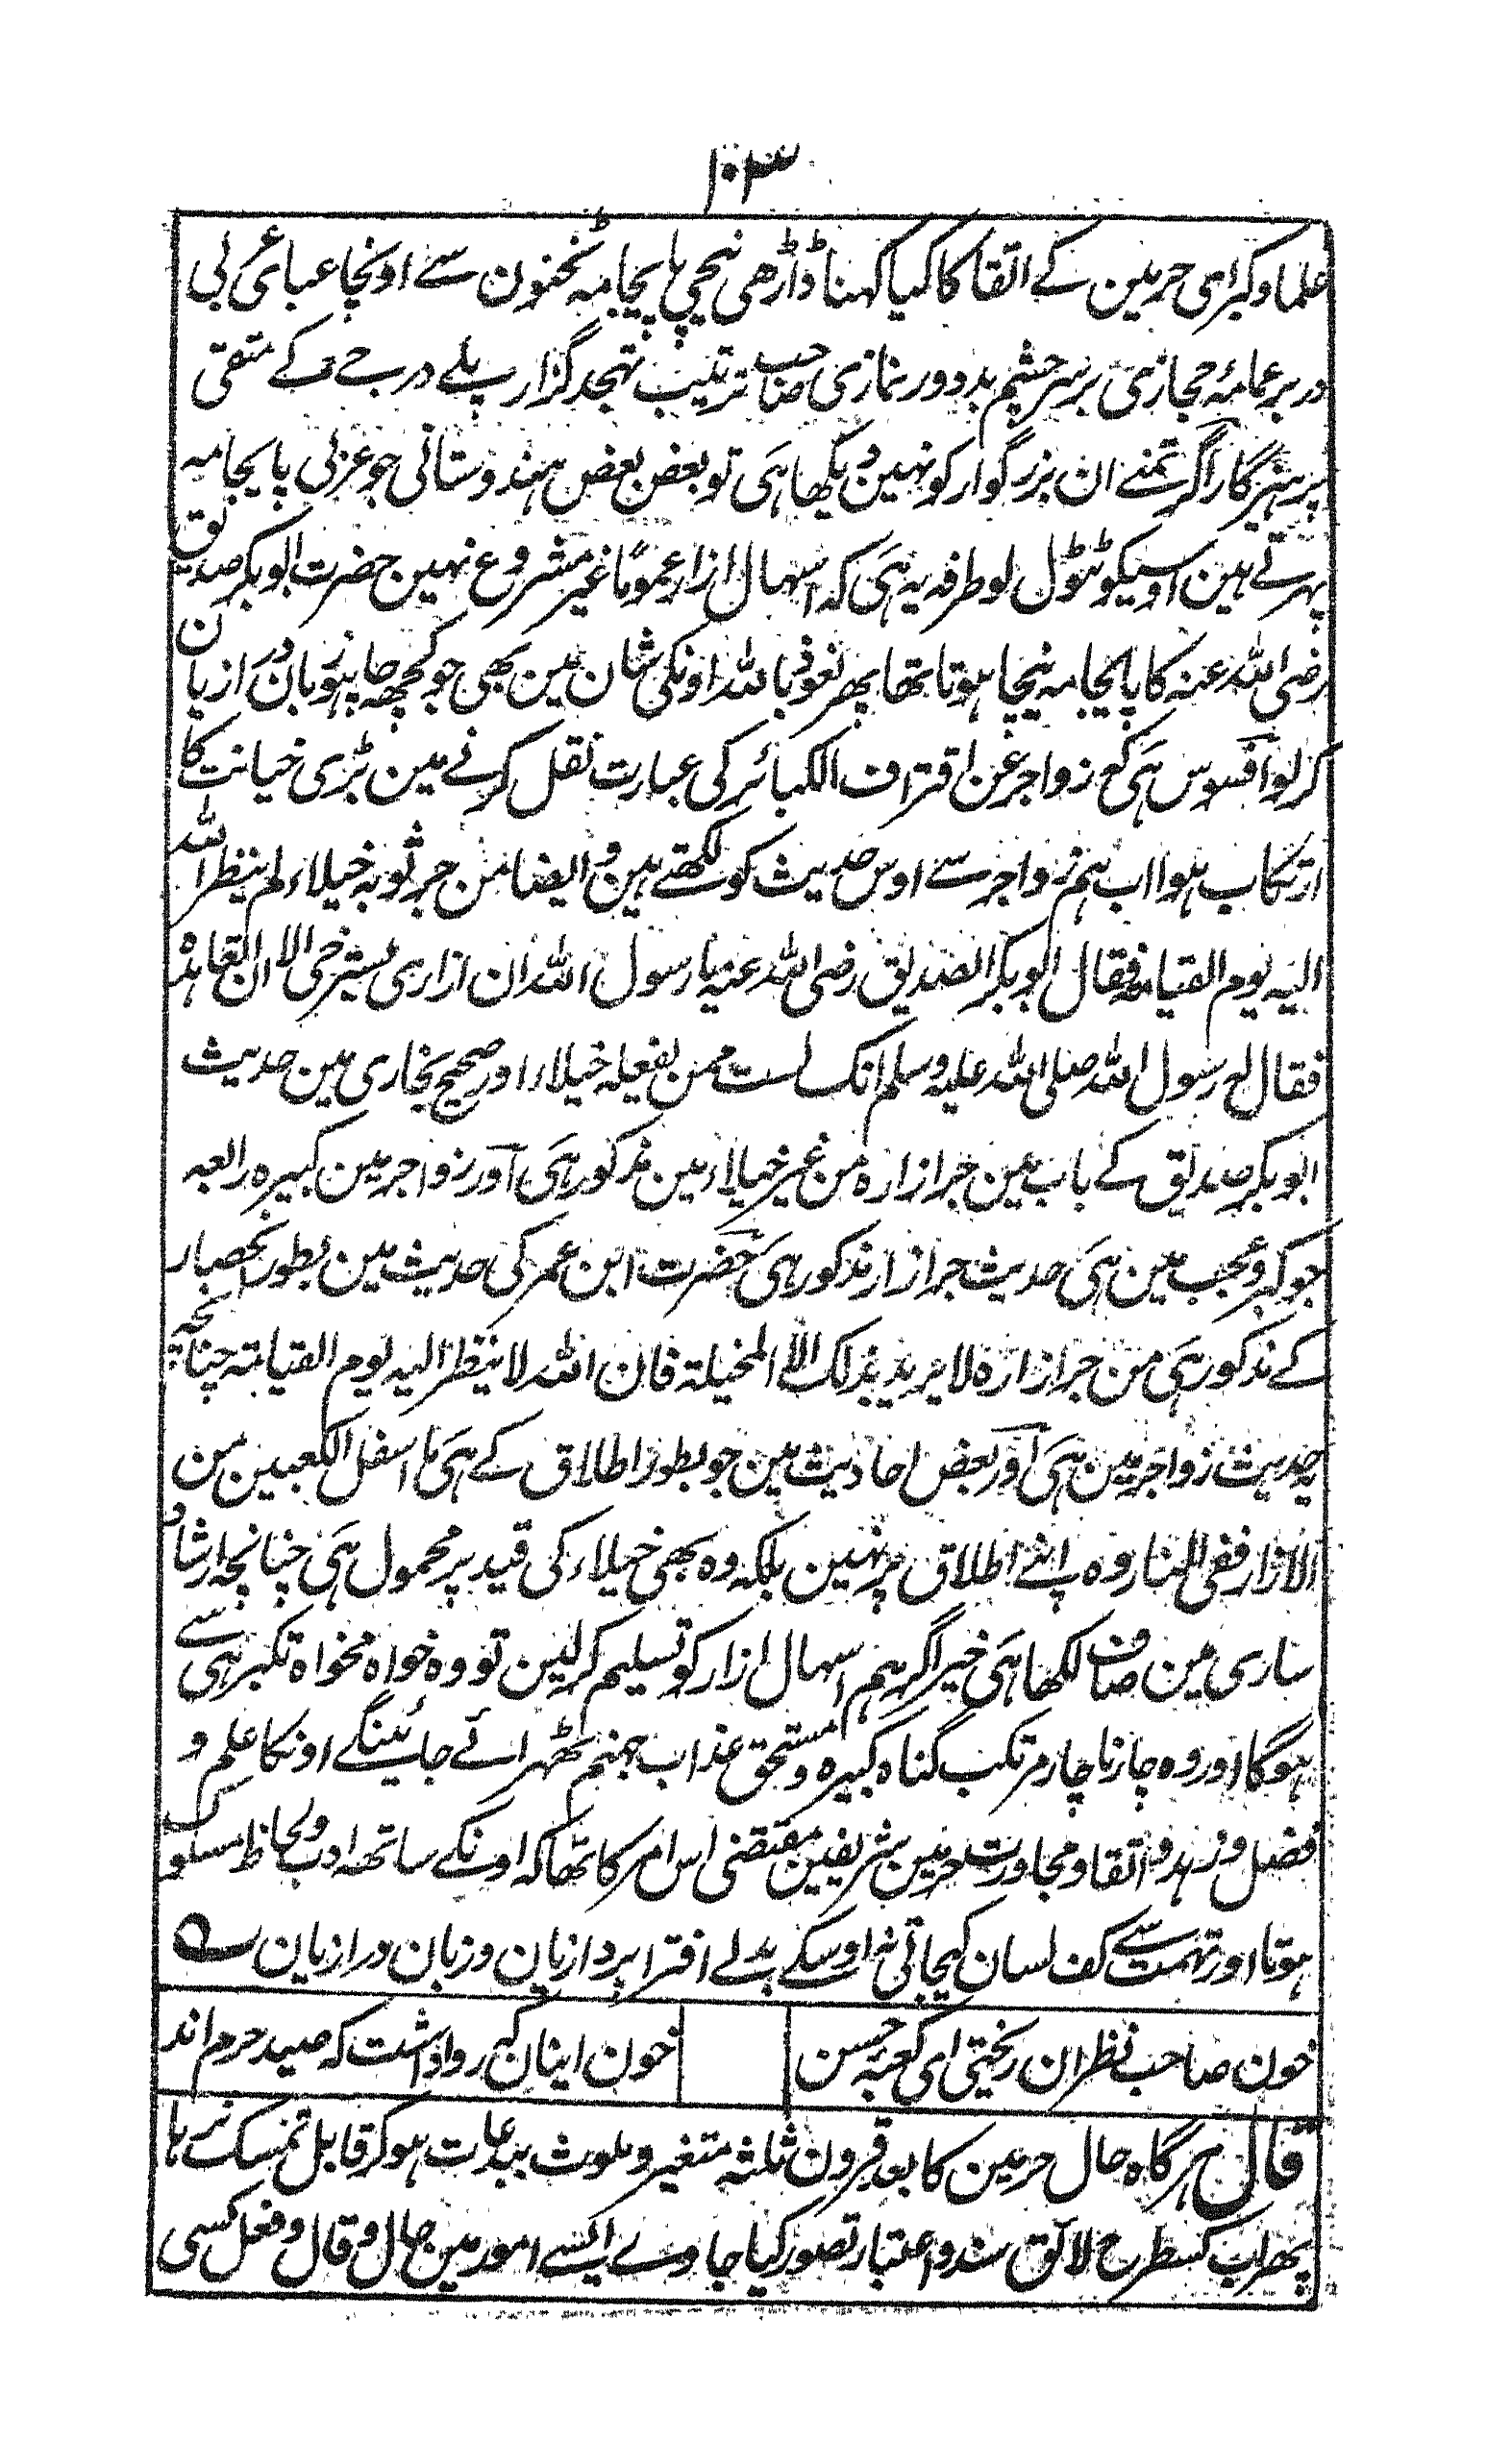 ۱۰۳
علما و کبرای حرمین کے اتقا کا کیا کہنا ڈاڑھی نیچی پایجامہ ٹخنون سے اونچا عبای عربی
در بر عمامۂ حجازی بر سر چشم بد دور نمازی صاحب ترتیب تہجد گزار پہلے درجے کے متقی
پرہیزگار اگر تمنے ان بزرگوار کو نہین دیکھا ہی تو بعض بعض ہندوستانی جو عربی پایجامہ
پہرتے ہین اوسیکو ٹٹول لو طرفہ یہ ہی کہ اسبال ازار عموماً غیر مشروع نہین حضرت ابوبکر صدیق
رضی اللہ عنہ کا پایجامہ نیچا ہوتا تھا پھر نعوذ باللہ اونکی شان مین بھی جو کچھہ چاہو زبان درازیان
کر لو افسوس ہی کہ زواجر عن اقتراف الکبائر کی عبارت نقل کرنے مین بڑی خیانت کا
ارتکاب ہوا اب ہم زواجر سے اوس حدیث کو لکھتے ہین و ایضا من جر ثوبہ خیلاء لم ینظر اللہ
الیہ یوم القیامۃ فقال ابو بکر الصدیق رضی اللہ عنہ یا رسول اللہ ان ازاری یسترخی الا ان اتعاہدہ
فقال لہ رسول اللہ صلی اللہ علیہ وسلم انک لست ممن یفعلہ خیلاء اور صحیح بخاری مین حدیث
ابو بکر صدیق کے باب مین جر ازارہ من غیر خیلاء مین مذکور ہی اور زواجر مین کبیرہ رابعہ
جو کبر و عجب مین ہی حدیث جر ازار مذکور ہی حضرت ابن عمر کی حدیث مین بطور انحصار
کے مذکور ہی من جر ازارہ لا یرید بذلک الا المخیلۃ فان اللہ لا ینظر الیہ یوم القیامۃ چنانچہ
یہ حدیث زواجر مین ہی اور بعض احادیث مین جو بطور اطلاق کے ہی ما اسفل الکعبین من
الازار ففی النار وہ اپنے اطلاق پر نہین بلکہ وہ بھی خیلاء کی قید پر محمول ہی چنانچہ ارشاد
ساری مین صاف لکھا ہی خیر اگر ہم اسبال ازار کو تسلیم کر لین تو وہ خواہ مخواہ تکبر ہی سے
ہوگا اور وہ چار ناچار مرتکب گناہ کبیرہ و مستحق عذاب جہنم ٹھہرائے جائینگے اونکا علم و
فضل و زہد و اتقا و مجاورت حرمین شریفین مقتضی اس امر کا تھا کہ اونکے ساتھہ ادب و لحاظ مسلوک
ہوتا اور تہمت سے کف لسان کیجاتی نہ اوسکے بدلے افترا پردازیان و زبان درازیان ؎
خون صاحب نظران ریختی ای کعبۂ حسن خون اینان کہ روا داشت کہ صید حرم اند
قال ہر گاہ حال حرمین کا بعد قرون ثلثہ متغیر و ملوث ببدعات ہوکر قابل تمسک نہ رہا
پھر اب کسطرح لائق سند و اعتبار تصور کیا جاوے ایسے امور مین حال و قال و فعل کسی